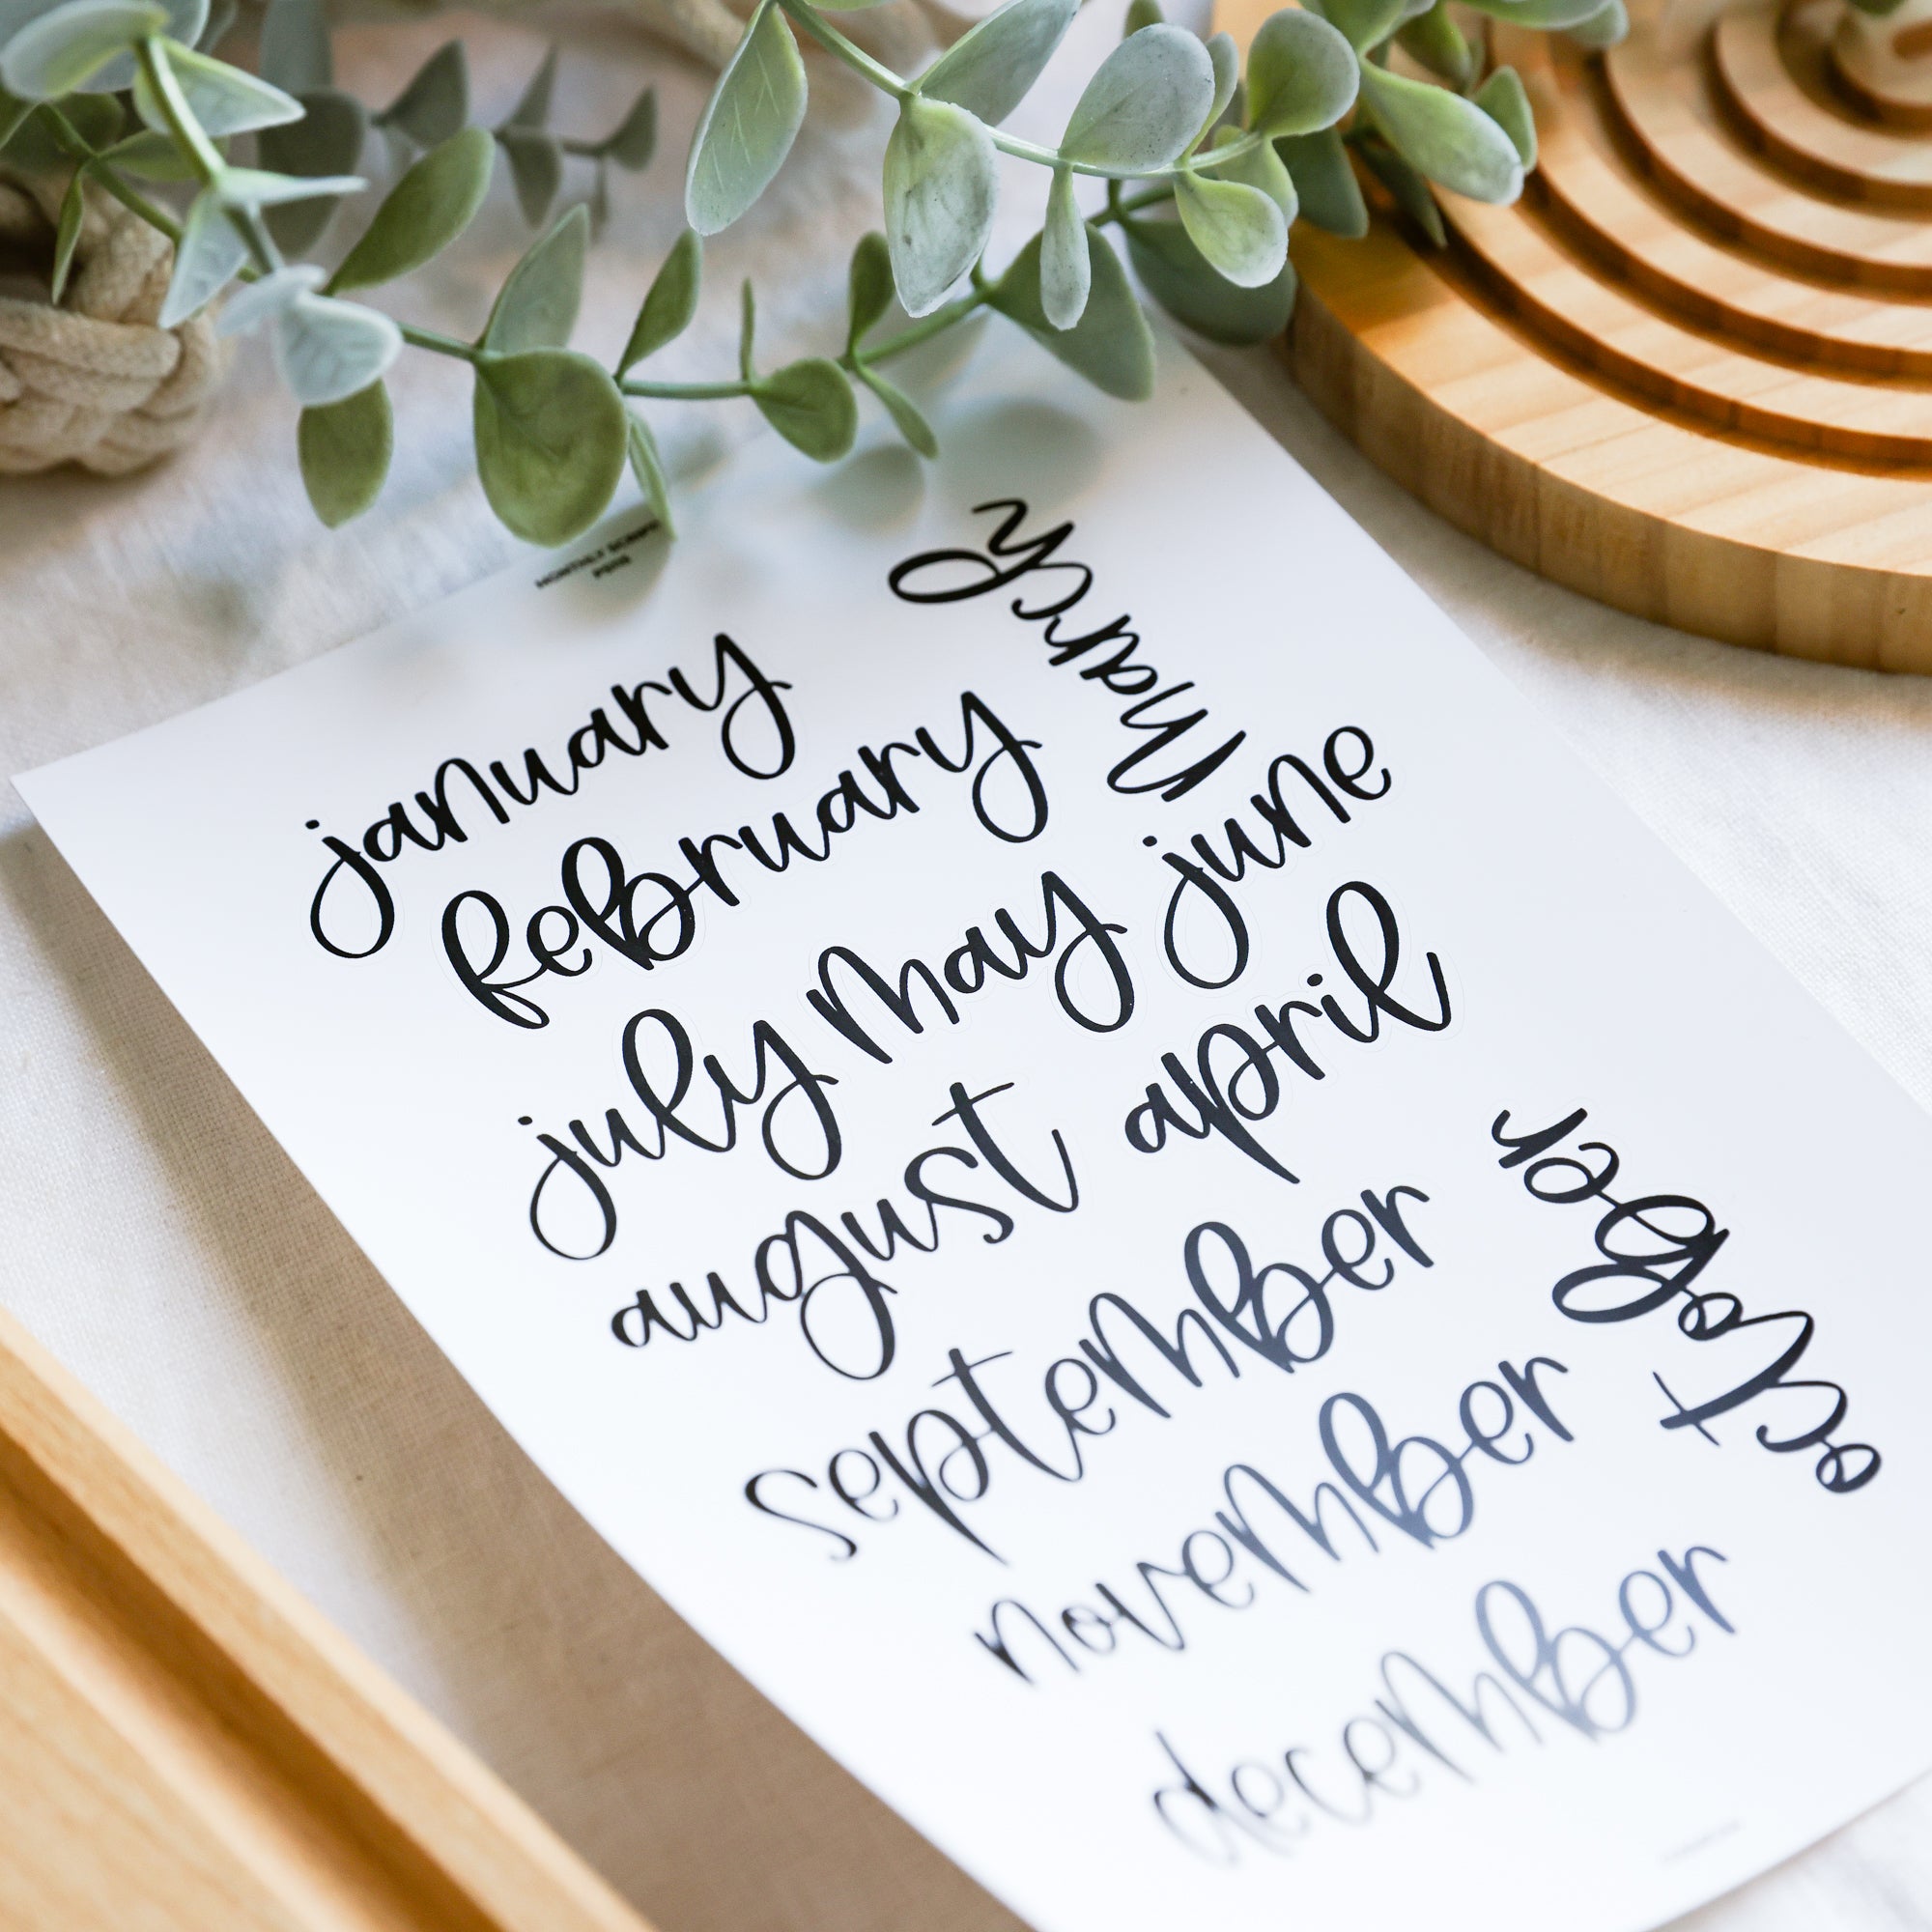 MONTHLY SCRIPT
january
february
march
july may june
august april
september
october
november
december